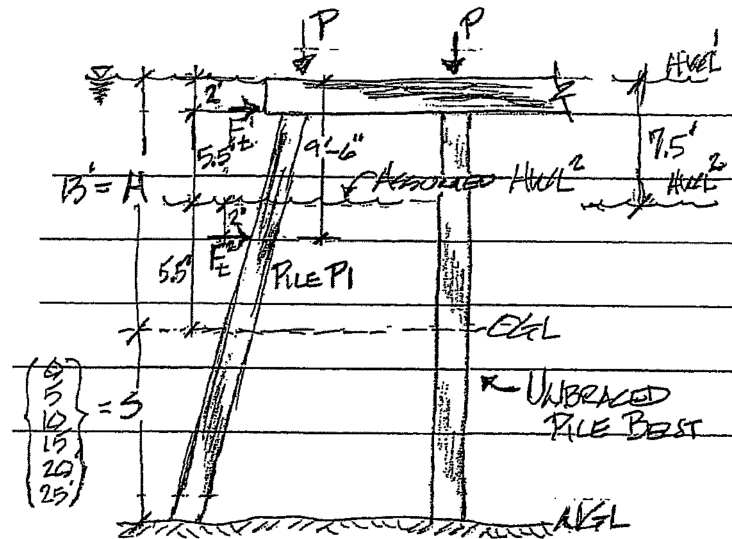 P
P
HWL¹
2'
Ft¹
5.5'
9'-6"
7.5'
13' = H
ASSUMED HWL²
HWL²
2'
Ft²
5.5'
PILE P1
OGL
0
5
10
15
20
25'
= S
UNBRACED
PILE BENT
NGL